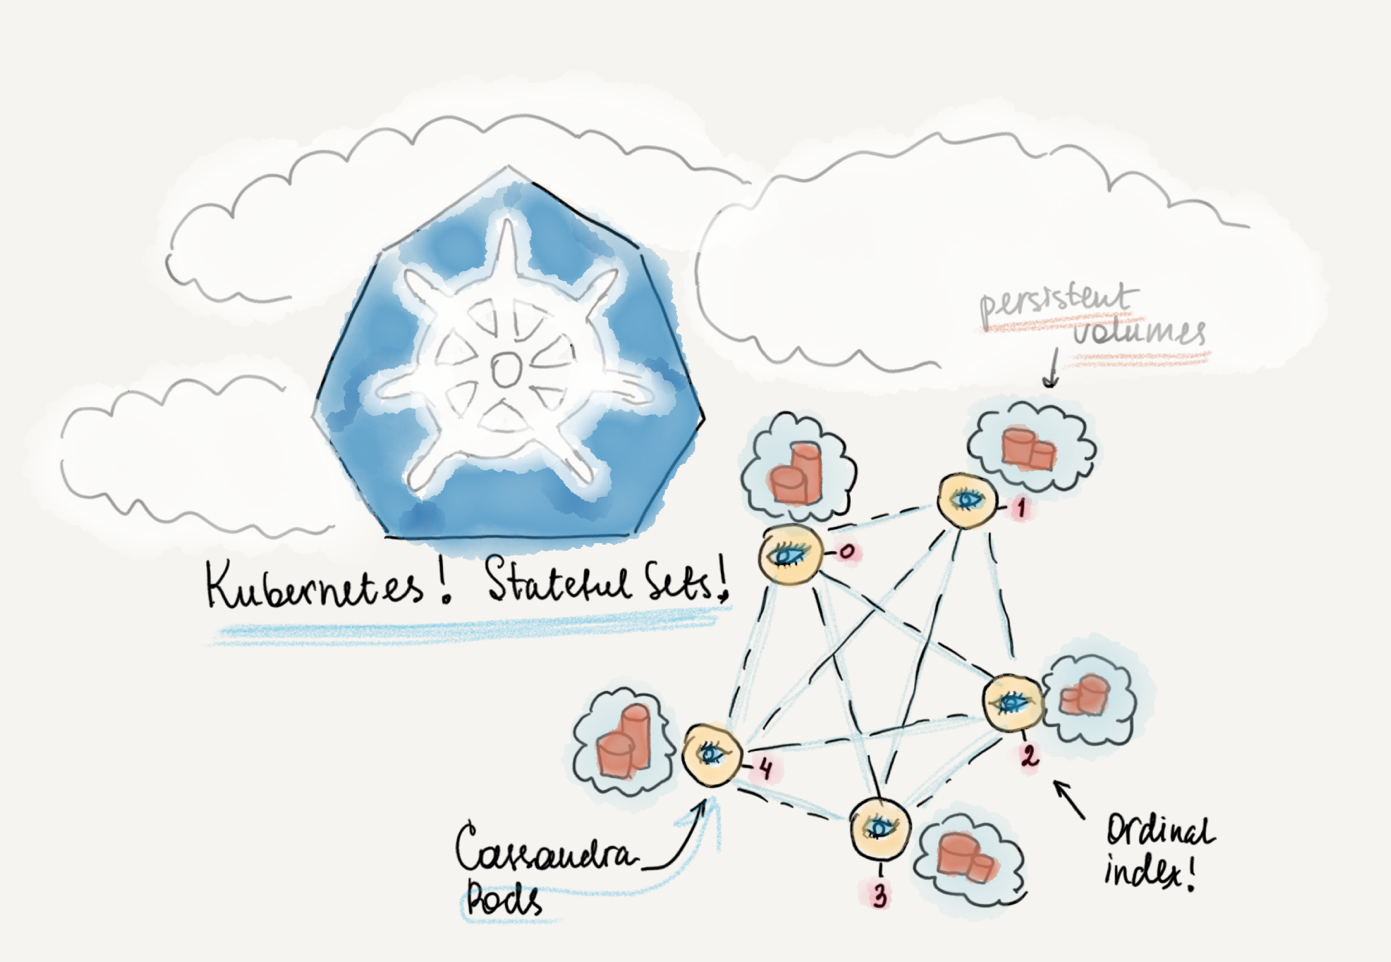 persistent
volumes
1
0
Kubernetes! Stateful Sets!
2
4
Cassandra
Pods
Ordinal
index!
3